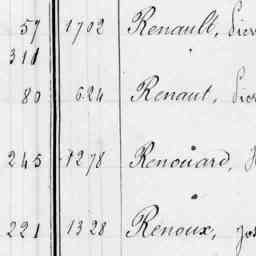 57 1702 Renault,
311
80 624 Renaut,
245 1278 Renouard,
221 1328 Renoux,